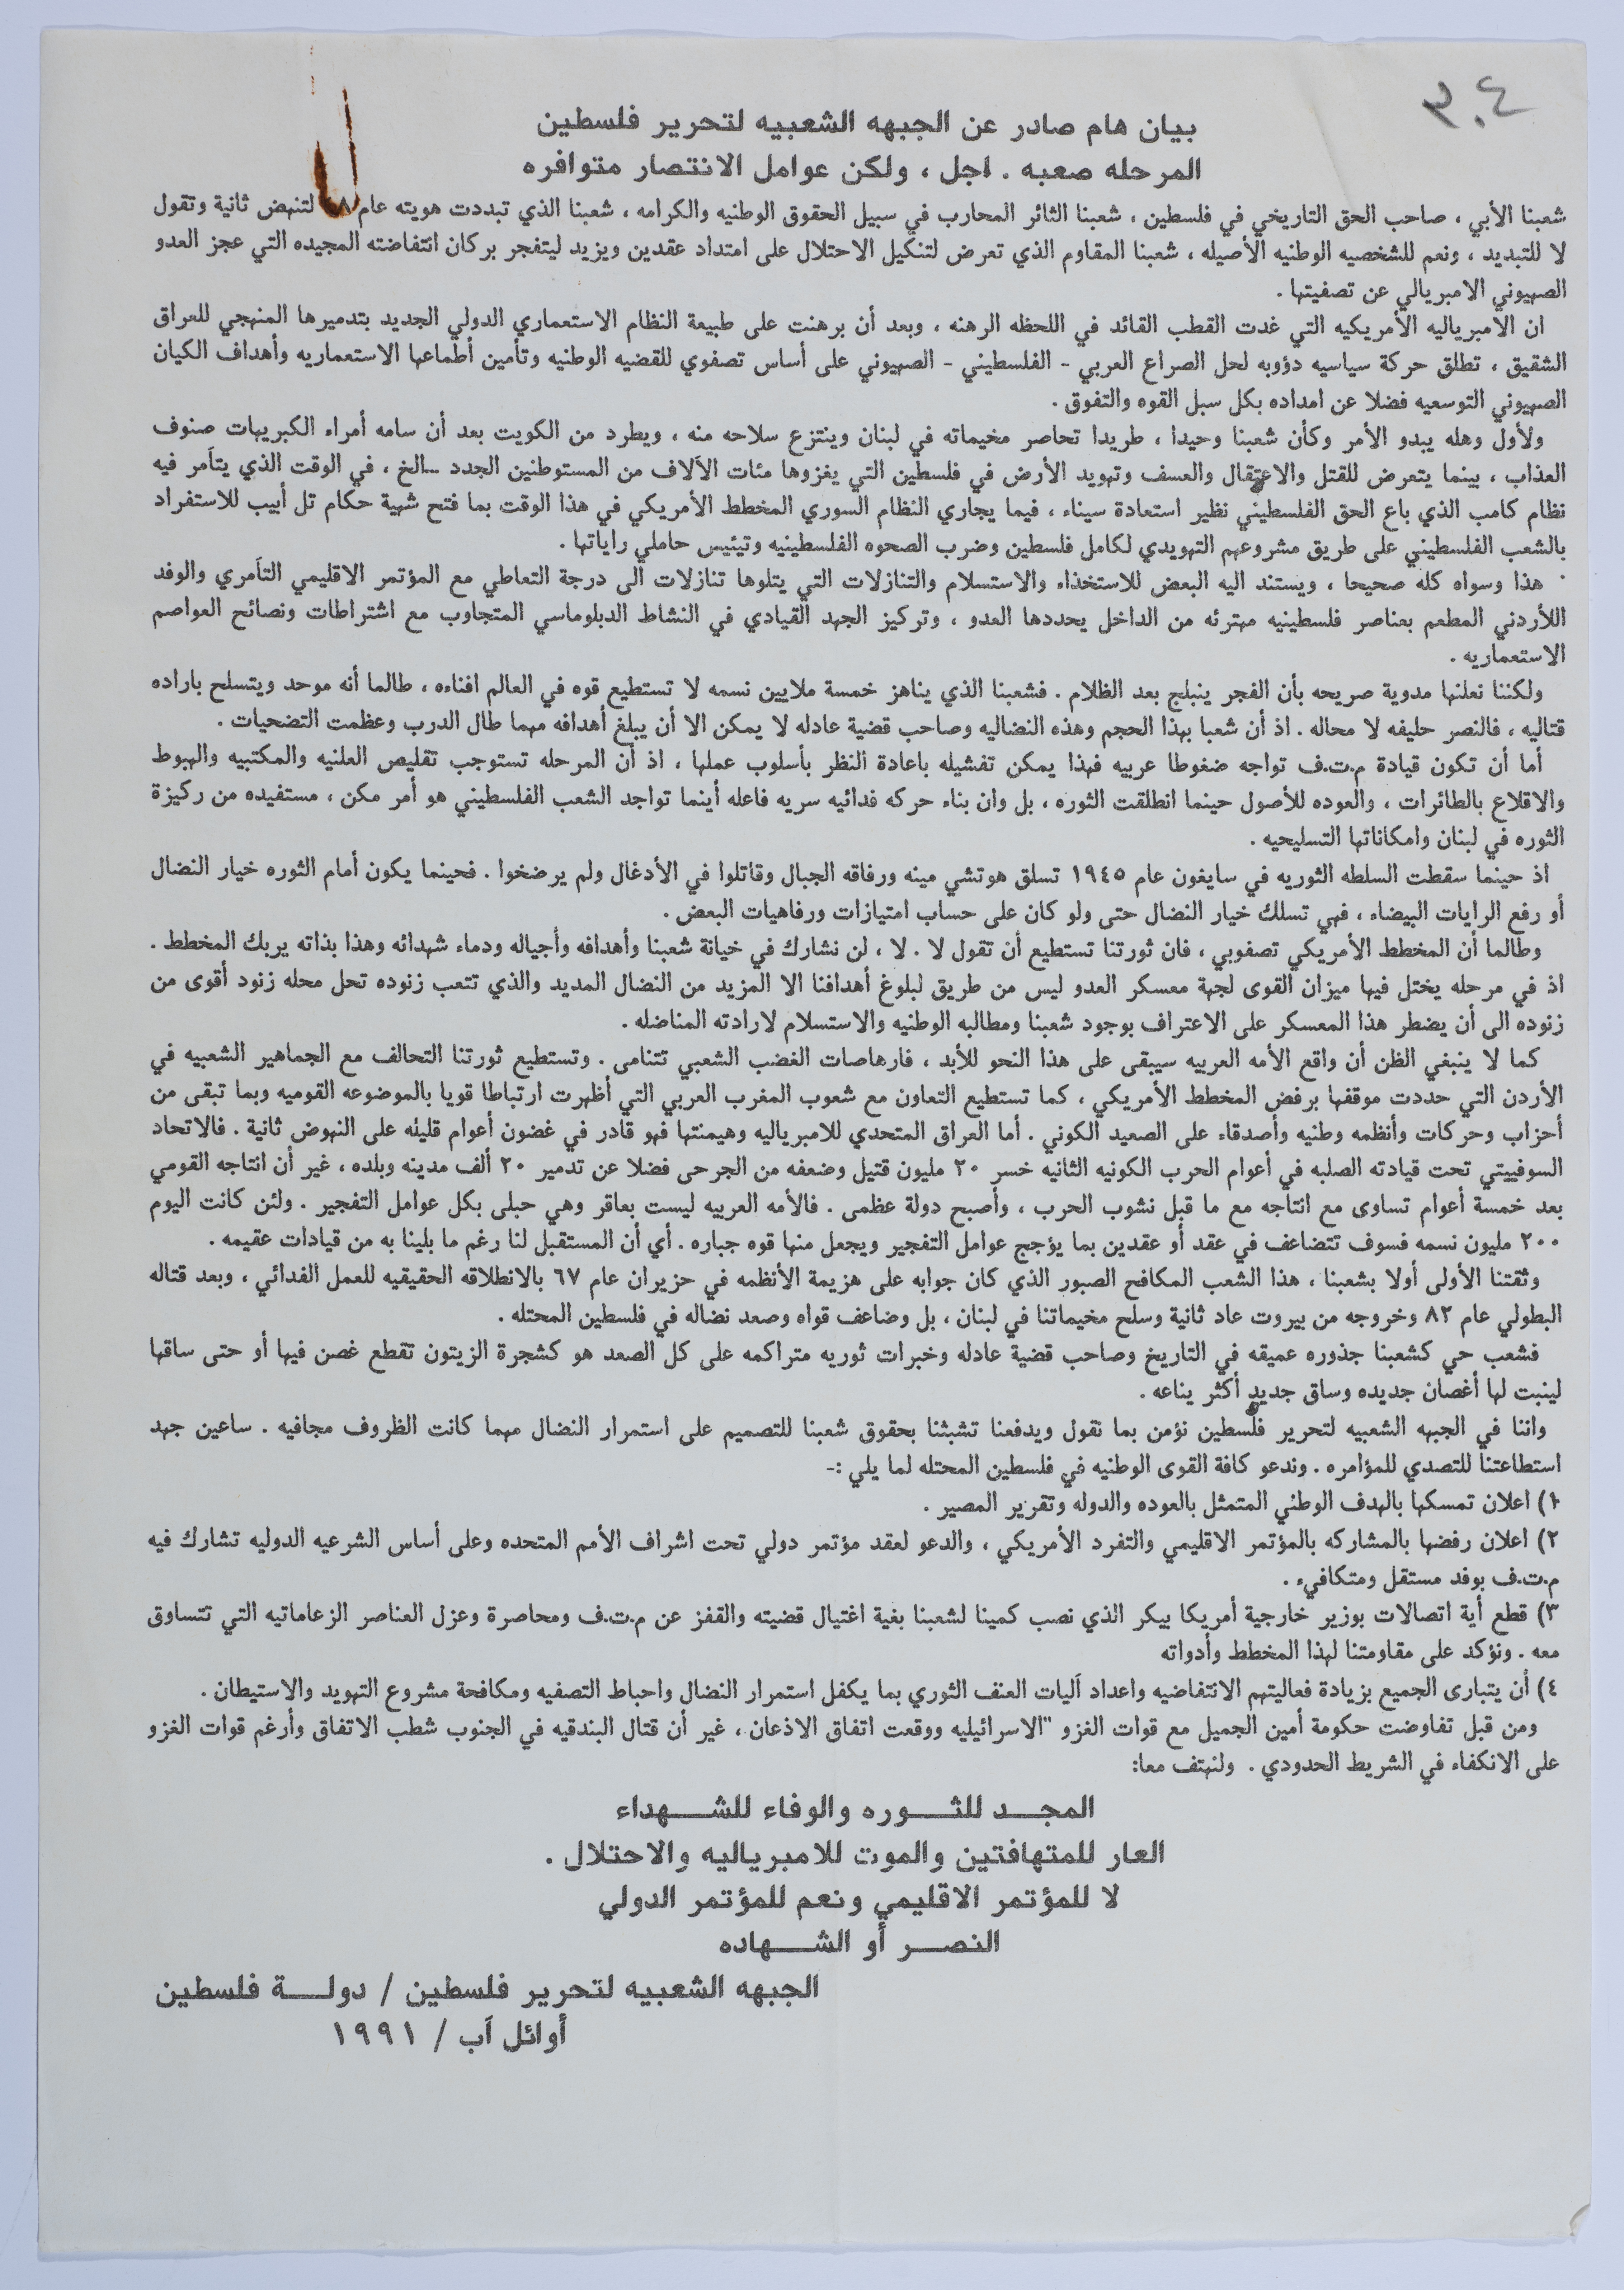 ٣٠٤
بيان هام صادر عن الجبهه الشعبيه لتحرير فلسطين
المرحله صعبه . اجل ، ولكن عوامل الانتصار متوافره
شعبنا الأبي ، صاحب الحق التاريخي في فلسطين ، شعبنا الثائر المحارب في سبيل الحقوق الوطنيه والكرامه ، شعبنا الذي تبددت هويته عام ٨ لتنهض ثانية وتقول
لا للتبديد ، ونعم للشخصيه الوطنيه الأصيله ، شعبنا المقاوم الذي تعرض لتنكيل الاحتلال على امتداد عقدين ويزيد ليتفجر بركان انتفاضته المجيده التي عجز العدو
الصهيوني الامبريالي عن تصفيتها .
ان الامبرياليه الأمريكيه التي غدت القطب القائد في اللحظه الرهنه ، وبعد أن برهنت على طبيعة النظام الاستعماري الدولي الجديد بتدميرها المنهجي للعراق
الشقيق ، تطلق حركة سياسيه دؤوبه لحل الصراع العربي - الفلسطيني - الصهيوني على أساس تصفوي للقضيه الوطنيه وتأمين أطماعها الاستعماريه وأهداف الكيان
الصهيوني التوسعيه فضلا عن امداده بكل سبل القوه والتفوق .
ولأول وهله يبدو الأمر وكأن شعبنا وحيدا ، طريدا تحاصر مخيماته في لبنان وينتزع سلاحه منه ، ويطرد من الكويت بعد أن سامه أمراء الكبريهات صنوف
العذاب ، بينما يتعرض للقتل والاعتقال والعسف وتهويد الأرض في فلسطين التي يغزوها مئات الآلاف من المستوطنين الجدد ...الخ ، في الوقت الذي يتآمر فيه
نظام كامب الذي باع الحق الفلسطيني نظير استعادة سيناء ، فيما يجاري النظام السوري المخطط الأمريكي في هذا الوقت بما فتح شهية حكام تل أبيب للاستفراد
بالشعب الفلسطيني على طريق مشروعهم التهويدي لكامل فلسطين وضرب الصحوه الفلسطينيه وتيئيس حاملي راياتها .
هذا وسواه كله صحيحا ، ويستند اليه البعض للاستخذاء والاستسلام والتنازلات التي يتلوها تنازلات الى درجة التعاطي مع المؤتمر الاقليمي التآمري والوفد
اللأردني المطعم بعناصر فلسطينيه مهترئه من الداخل يحددها العدو ، وتركيز الجهد القيادي في النشاط الدبلوماسي المتجاوب مع اشتراطات ونصائح العواصم
الاستعماريه .
ولكننا نعلنها مدوية صريحه بأن الفجر ينبلج بعد الظلام . فشعبنا الذي يناهز خمسة ملايين نسمه لا تستطيع قوه في العالم افناءه ، طالما أنه موحد ويتسلح باراده
قتاليه ، فالنصر حليفه لا محاله . اذ أن شعبا بهذا الحجم وهذه النضاليه وصاحب قضية عادله لا يمكن الا أن يبلغ أهدافه مهما طال الدرب وعظمت التضحيات .
أما أن تكون قيادة م.ت.ف تواجه ضغوطا عربيه فهذا يمكن تفشيله باعادة النظر بأسلوب عملها ، اذ أن المرحله تستوجب تقليص العلنيه والمكتبيه والهبوط
والاقلاع بالطائرات ، والعوده للأصول حينما انطلقت الثوره ، بل وان بناء حركه فدائيه سريه فاعله أينما تواجد الشعب الفلسطيني هو أمر مكن ، مستفيده من ركيزة
الثوره في لبنان وامكاناتها التسليحيه .
اذ حينما سقطت السلطه الثوريه في سايغون عام ١٩٤٥ تسلق هوتشي مينه ورفاقه الجبال وقاتلوا في الأدغال ولم يرضخوا . فحينما يكون أمام الثوره خيار النضال
أو رفع الرايات البيضاء ، فهي تسلك خيار النضال حتى ولو كان على حساب امتيازات ورفاهيات البعض .
وطالما أن المخطط الأمريكي تصفوبي ، فان ثورتنا تستطيع أن تقول لا . لا ، لن نشارك في خيانة شعبنا وأهدافه وأجياله ودماء شهدائه وهذا بذاته يربك المخطط .
اذ في مرحله يختل فيها ميزان القوى لجهة معسكر العدو ليس من طريق لبلوغ أهدافنا الا المزيد من النضال المديد والذي تتعب زنوده تحل محله زنود أقوى من
زنوده الى أن يضطر هذا المعسكر على الاعتراف بوجود شعبنا ومطالبه الوطنيه والاستسلام لارادته المناضله .
كما لا ينبغي الظن أن واقع الأمه العربيه سيبقى على هذا النحو للأبد ، فارهاصات الغضب الشعبي تتنامى . وتستطيع ثورتنا التحالف مع الجماهير الشعبيه في
الأردن التي حددت موقفها برفض المخطط الأمريكي ، كما تستطيع التعاون مع شعوب المغرب العربي التي أظهرت ارتباطا قويا بالموضوعه القوميه وبما تبقى من
أحزاب وحركات وأنظمه وطنيه وأصدقاء على الصعيد الكوني . أما العراق المتحدي للامبرياليه وهيمنتها فهو قادر في غضون أعوام قليله على النهوض ثانية . فالاتحاد
السوفييتي تحت قيادته الصلبه في أعوام الحرب الكونيه الثانيه خسر ٢٠ مليون قتيل وضعفه من الجرحى فضلا عن تدمير ٢٠ ألف مدينه وبلده ، غير أن انتاجه القومي
بعد خمسة أعوام تساوى مع انتاجه مع ما قبل نشوب الحرب ، وأصبح دولة عظمى . فالأمه العربيه ليست بعاقر وهي حبلى بكل عوامل التفجير . ولئن كانت اليوم
٢٠٠ مليون نسمه فسوف تتضاعف في عقد أو عقدين بما يؤجج عوامل التفجير ويجعل منها قوه جباره . أي أن المستقبل لنا رغم ما بلينا به من قيادات عقيمه .
وثقتنا الأولى أولا بشعبنا ، هذا الشعب المكافح الصبور الذي كان جوابه على هزيمة الأنظمه في حزيران عام ٦٧ بالانطلاقه الحقيقيه للعمل الفدائي ، وبعد قتاله
البطولي عام ٨٢ وخروجه من بيروت عاد ثانية وسلح مخيماتنا في لبنان ، بل وضاعف قواه وصعد نضاله في فلسطين المحتله .
فشعب حي كشعبنا جذوره عميقه في التاريخ وصاحب قضية عادله وخبرات ثوريه متراكمه على كل الصعد هو كشجرة الزيتون تقطع غصن فيها أو حتى ساقها
لينبت لها أغصان جديده وساق جديد أكثر يناعه .
واننا في الجبهه الشعبيه لتحرير فلسطين نؤمن بما نقول ويدفعنا تشبثنا بحقوق شعبنا للتصميم على استمرار النضال مهما كانت الظروف مجافيه . ساعين جهد
استطاعتنا للتصدي للمؤامره . وندعو كافة القوى الوطنيه في فلسطين المحتله لما يلي :-
١) اعلان تمسكها بالهدف الوطني المتمثل بالعوده والدوله وتقرير المصير .
٢) اعلان رفضها بالمشاركه بالمؤتمر الاقليمي والتفرد الأمريكي ، والدعو لعقد مؤتمر دولي تحت اشراف الأمم المتحده وعلى أساس الشرعيه الدوليه تشارك فيه
م.ت.ف بوفد مستقل ومتكافيء .
٣) قطع أية اتصالات بوزير خارجية أمريكا بيكر الذي نصب كمينا لشعبنا بغية اغتيال قضيته والقفز عن م.ت.ف ومحاصرة وعزل العناصر الزعاماتيه التي تتساوق
معه . ونؤكد على مقاومتنا لهذا المخطط وأدواته
٤) أن يتبارى الجميع بزيادة فعاليتهم الانتفاضيه واعداد آليات العنف الثوري بما يكفل استمرار النضال واحباط التصفيه ومكافحة مشروع التهويد والاستيطان .
ومن قبل تفاوضت حكومة أمين الجميل مع قوات الغزو "الاسرائيليه ووقعت اتفاق الاذعان ، غير أن قتال البندقيه في الجنوب شطب الاتفاق وأرغم قوات الغزو
على الانكفاء في الشريط الحدودي . ولنهتف معا:
المجـــد للثـــوره والوفاء للشـــهداء
العار للمتهافتين والموت للامبرياليه والاحتلال .
لا للمؤتمر الاقليمي ونعم للمؤتمر الدولي
النصـــر أو الشـــهاده
الجبهه الشعبيه لتحرير فلسطين / دولـــة فلسطين
أوائل آب / ١٩٩١